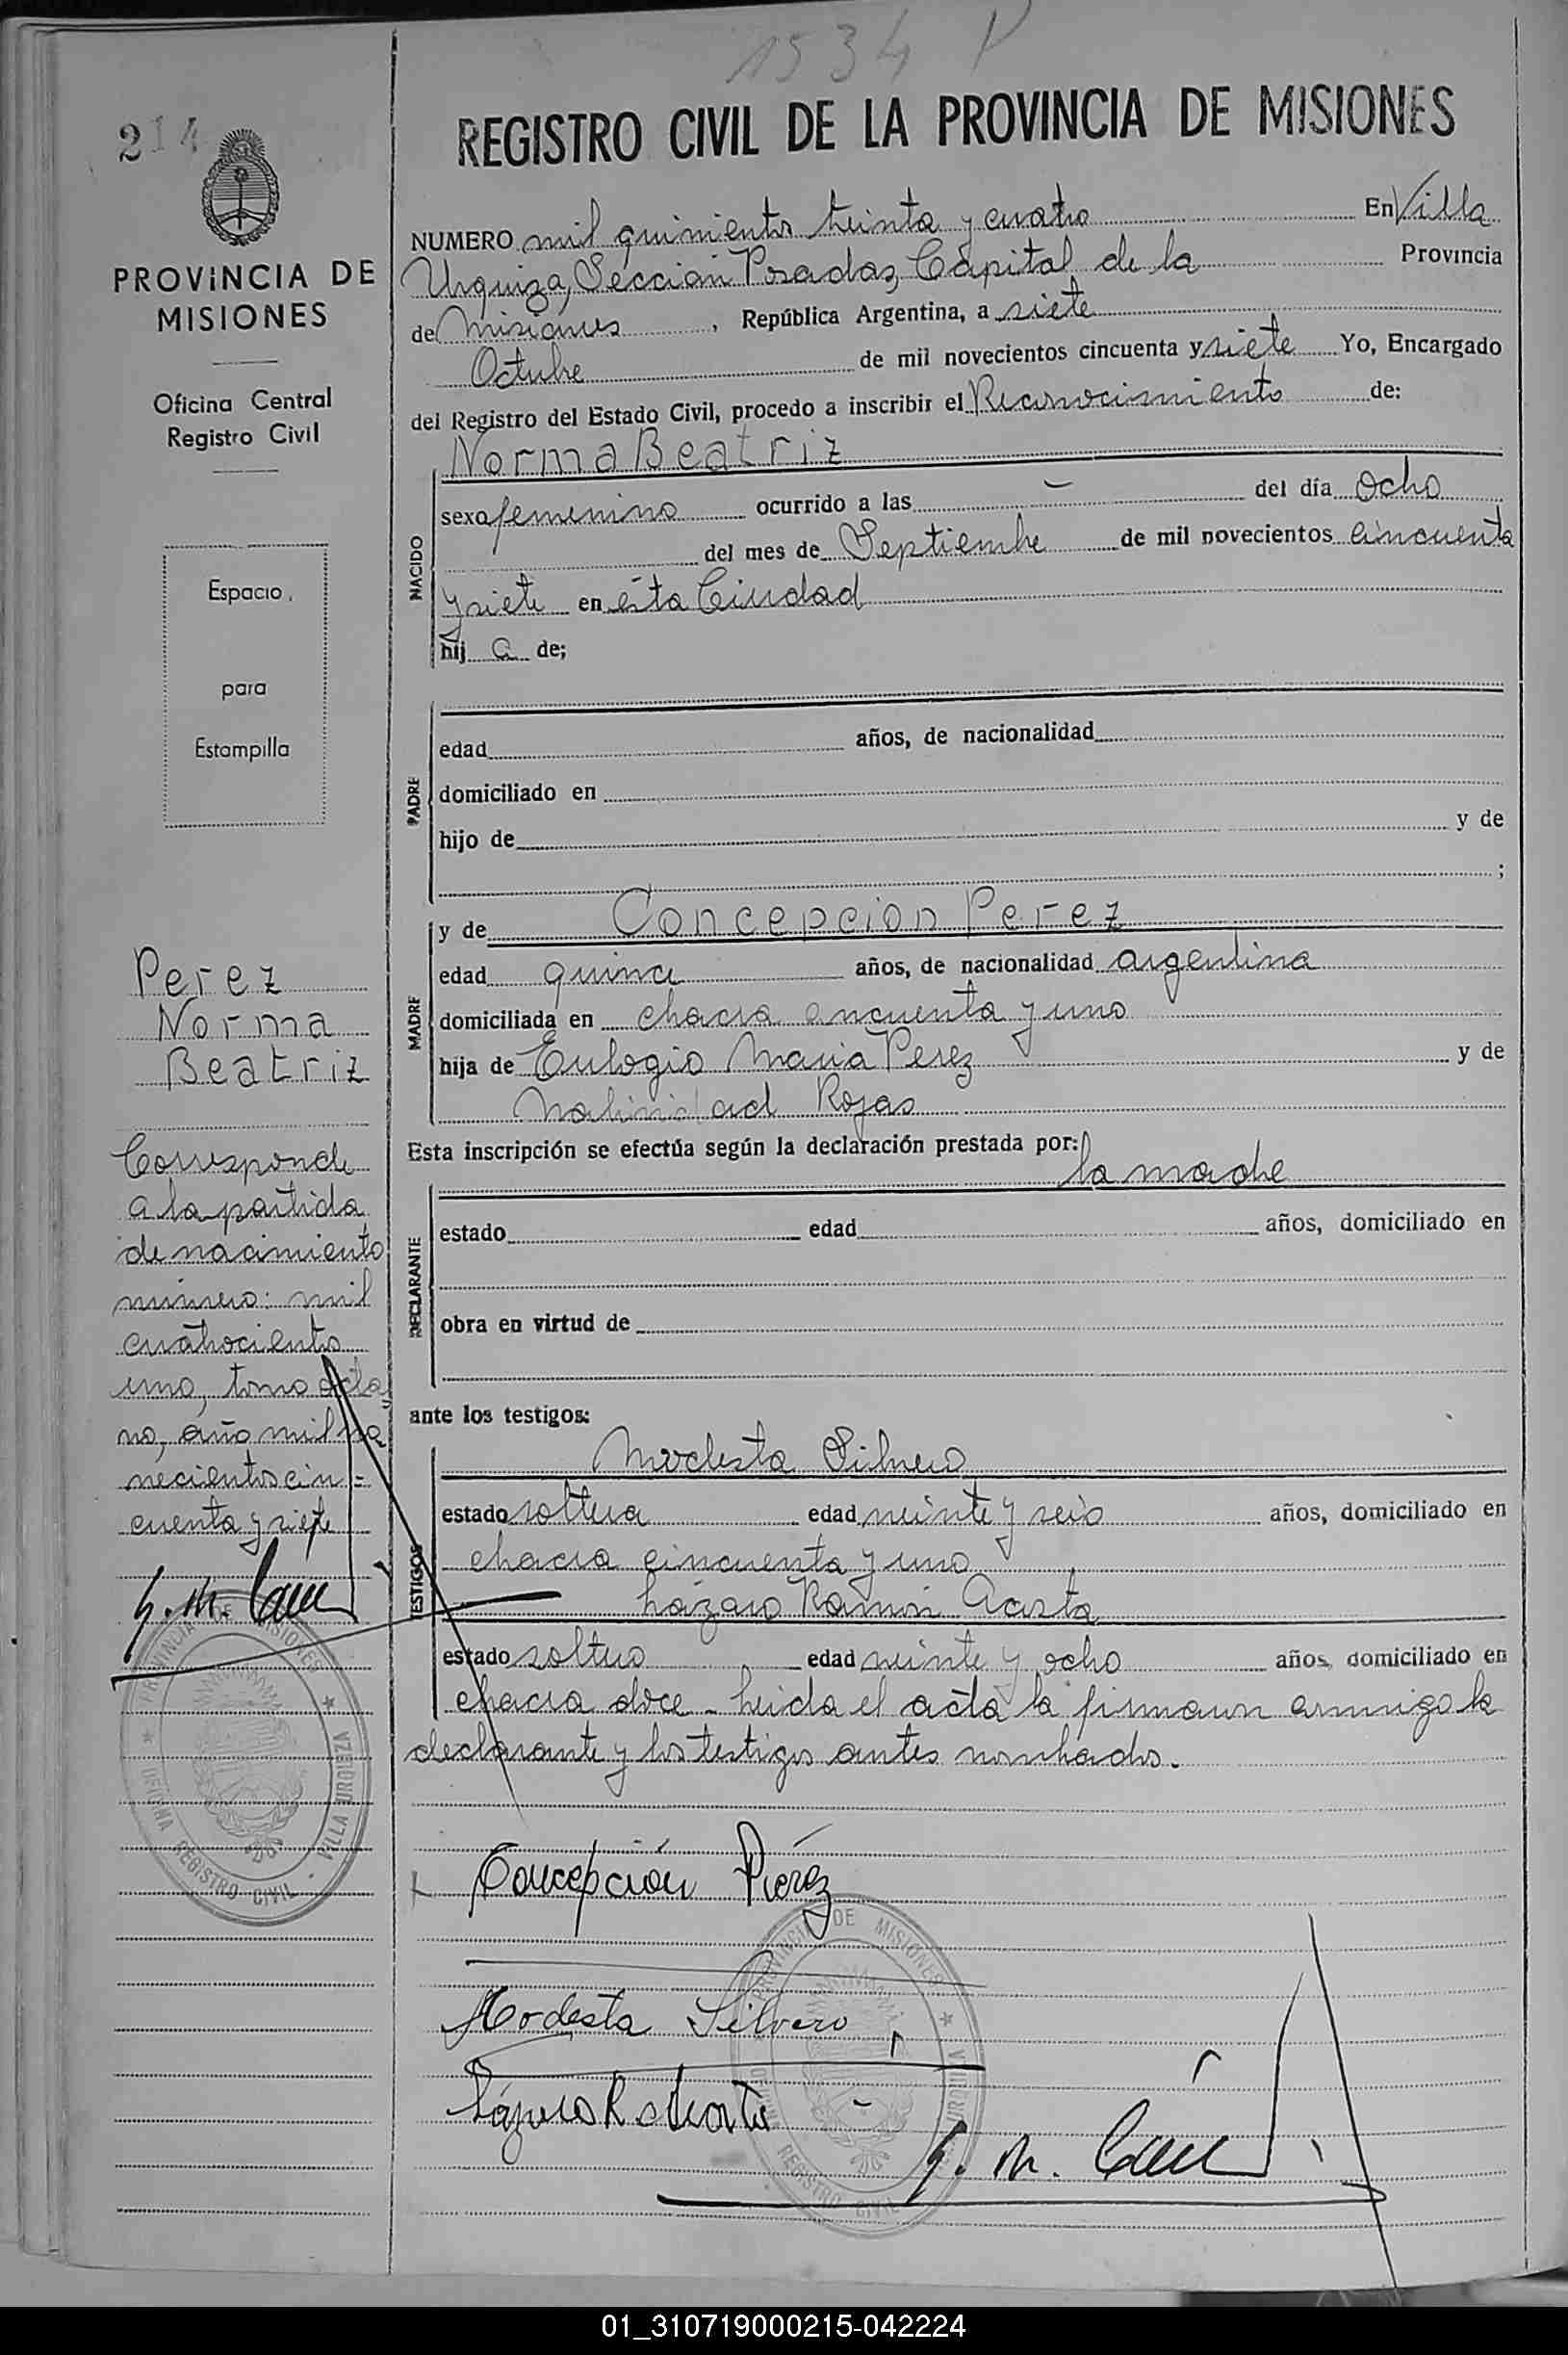 1534 P
214
REGISTRO CIVIL DE LA PROVINCIA DE MISIONES
PROVINCIA DE
MISIONES
Oficina Central
Registro Civil
Espacio
para
Estampilla
Perez
Norma
Beatriz
Corresponde
a la partida
de nacimiento
número: mil
cuatrocientos
uno, tomo octa
no, año mil no
vecientos cin=
cuenta y siete
PROVINCIA DE MISIONES
OFICINA REGISTRO CIVIL - VILLA URQUIZA
NUMERO mil quinientos treinta y cuatro En Villa
Urquiza, Sección Posadas, Capital de la Provincia
de Misiones, República Argentina, a siete
Octubre de mil novecientos cincuenta y siete Yo, Encargado
del Registro del Estado Civil, procedo a inscribir el Reconocimiento de:
NACIDO
Norma Beatriz
sexo femenino ocurrido a las - del día Ocho
del mes de Septiembre de mil novecientos cincuenta
y siete en ésta Ciudad
hij a de;
PADRE
edad años, de nacionalidad
domiciliado en
hijo de y de
;
MADRE
y de Concepcion Perez
edad quince años, de nacionalidad argentina
domiciliada en chacra cincuenta y uno
hija de Eulogio Maria Perez y de
Natividad Rojas
Esta inscripción se efectúa según la declaración prestada por:
la madre
DECLARANTE
estado edad años, domiciliado en
obra en virtud de
ante los testigos:
TESTIGOS
Modesta Silvero
estado soltera edad veinte y seis años, domiciliado en
chacra cincuenta y uno
Lázaro Ramón Acosta
estado soltero edad veinte y ocho años, domiciliado en
chacra doce - Leida el acta la firmaron conmigo la
declarante y los testigos antes nombrados.
Concepción Pérez
Modesta Silvero
Lázaro R Acosta
PROVINCIA DE MISIONES
OFICINA REGISTRO CIVIL VILLA URQUIZA
01_310719000215-042224